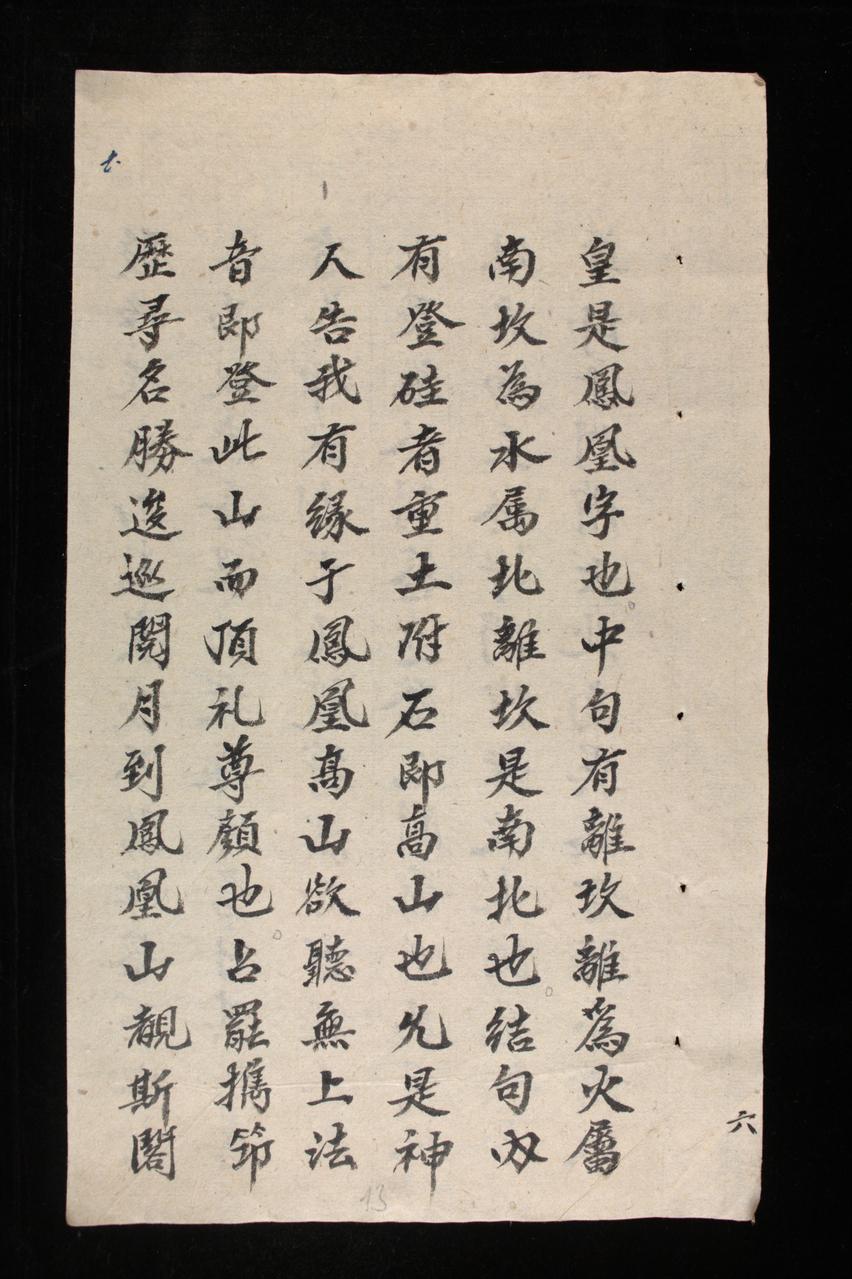 皇是鳳凰字也中句有離坎離為火屬
南坎為水属北離坎是南北也結句內
有登硅者重土附石即高山也允是神
人告我有緣于鳳凰高山欲聽無上法
音即登此山而頂礼尊顏也占罷攜笻
歷尋名勝逡巡閱月到鳳凰山覩斯閣
六
13